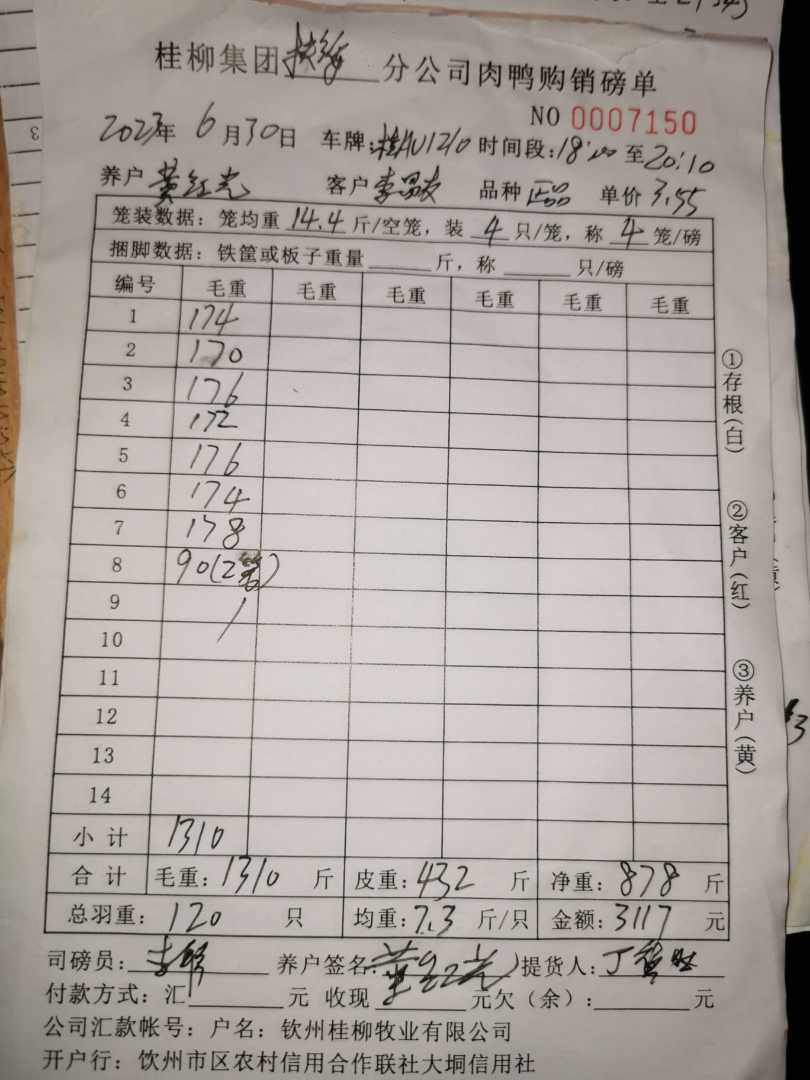 桂柳集团扶绥分公司肉鸭购销磅单
NO 0007150
2023年 6月30日 车牌:桂AU1210 时间段:18:00至20:10
养户 黄红光 客户 李昌友 品种 正品 单价 3.55
笼装数据：笼均重 14.4 斤/空笼，装 4 只/笼，称 4 笼/磅
捆脚数据：铁筐或板子重量 斤，称 只/磅
编号 毛重 毛重 毛重 毛重 毛重 毛重
1 174
2 170
3 176
4 172
5 176
6 174
7 178
8 90(2笼)
9 /
10
11
12
13
14
小计 1310
合计 毛重：1310 斤 皮重：432 斤 净重：878 斤
总羽重：120 只 均重：7.3 斤/只 金额：3117 元
司磅员： 养户签名：黄红光 提货人：
付款方式：汇 元 收现 元欠（余）： 元
公司汇款帐号：户名：钦州桂柳牧业有限公司
开户行：饮州市区农村信用合作联社大垌信用社
①存根(白)
②客户(红)
③养户(黄)